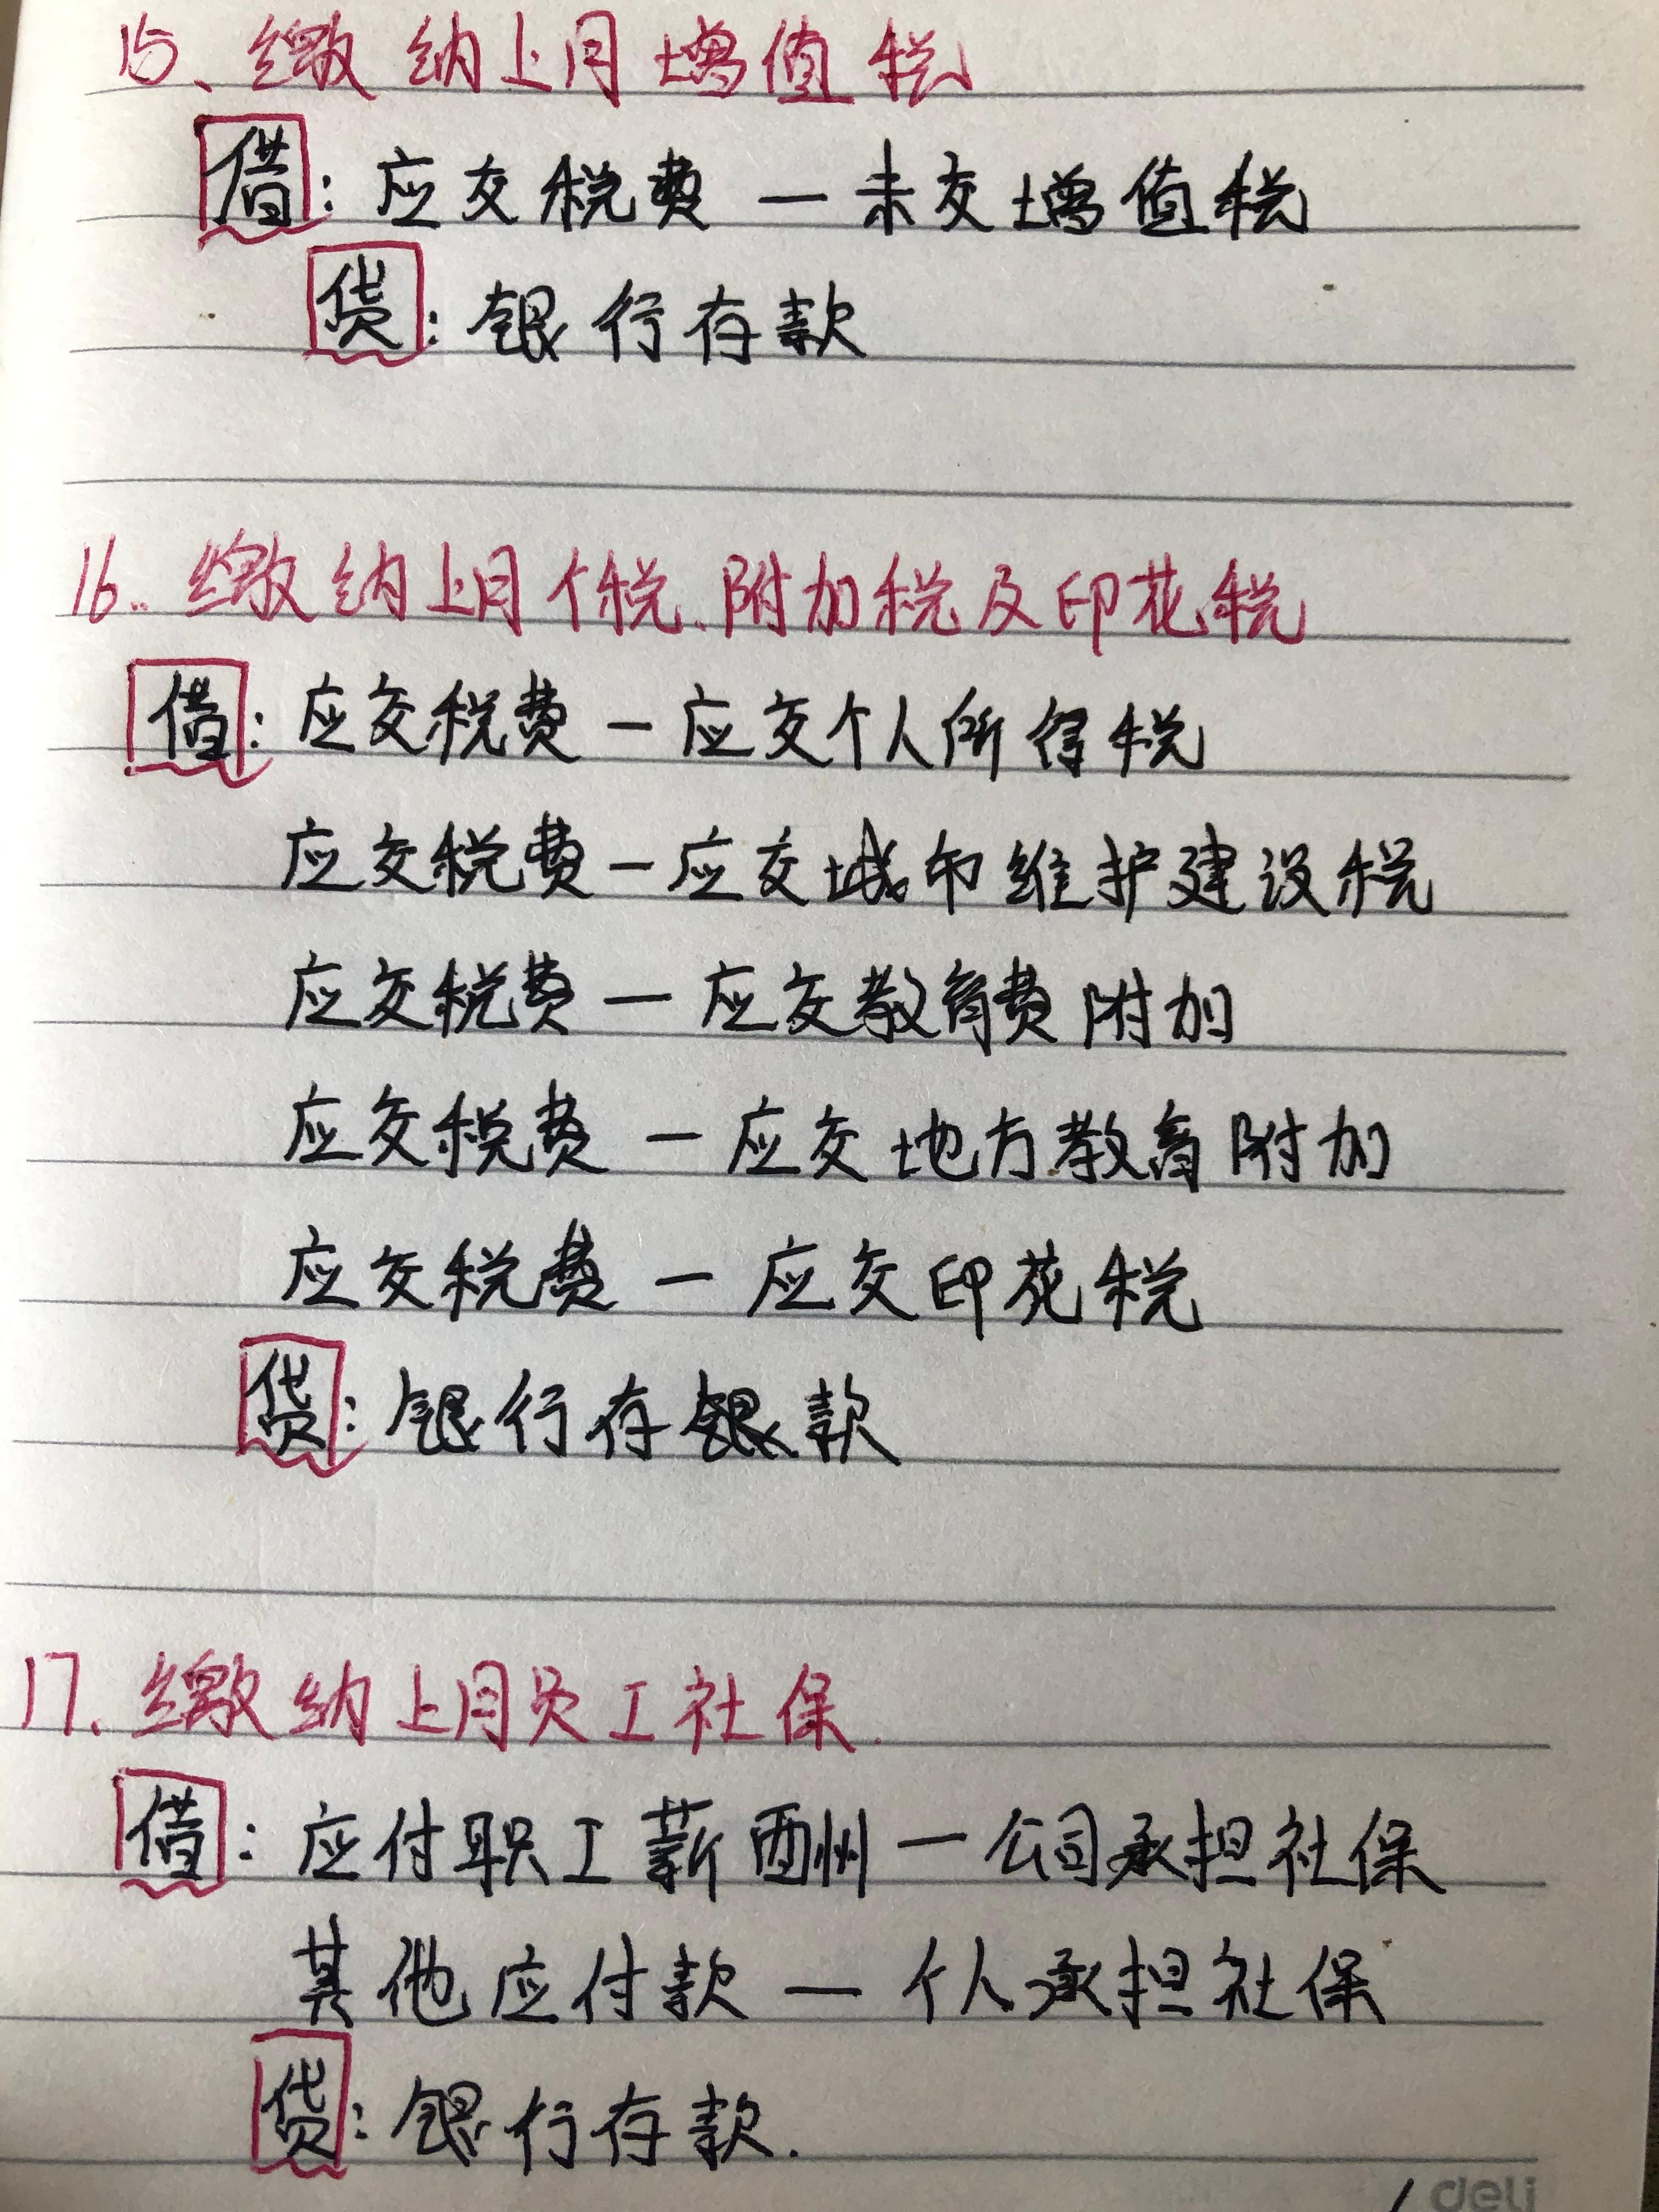 15、缴纳上月增值税
借：应交税费－未交增值税
贷：银行存款
16、缴纳上月个税、附加税及印花税
借：应交税费－应交个人所得税
应交税费－应交城市维护建设税
应交税费－应交教育费附加
应交税费－应交地方教育附加
应交税费－应交印花税
贷：银行存银款
17、缴纳上月员工社保.
借：应付职工薪酬－公司承担社保
其他应付款－个人承担社保
贷：银行存款.
deli